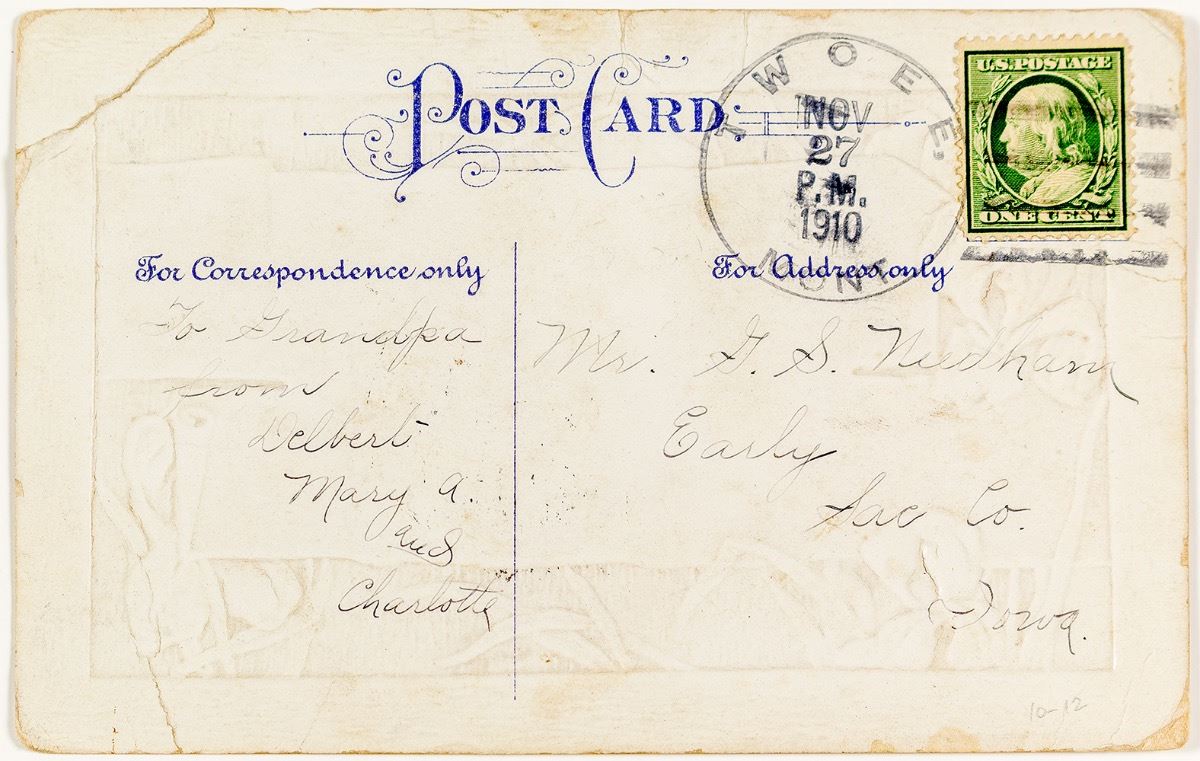 POST CARD
TWOEE.
NOV
27
P.M.
1910
MONT
U.S. POSTAGE
ONE CENT
For Correspondence only
For Address only
To Grandpa
from
Delbert
Mary A.
and
Charlotte
Mr. G. S. Needham
Early
Sac Co.
Iowa.
10-12